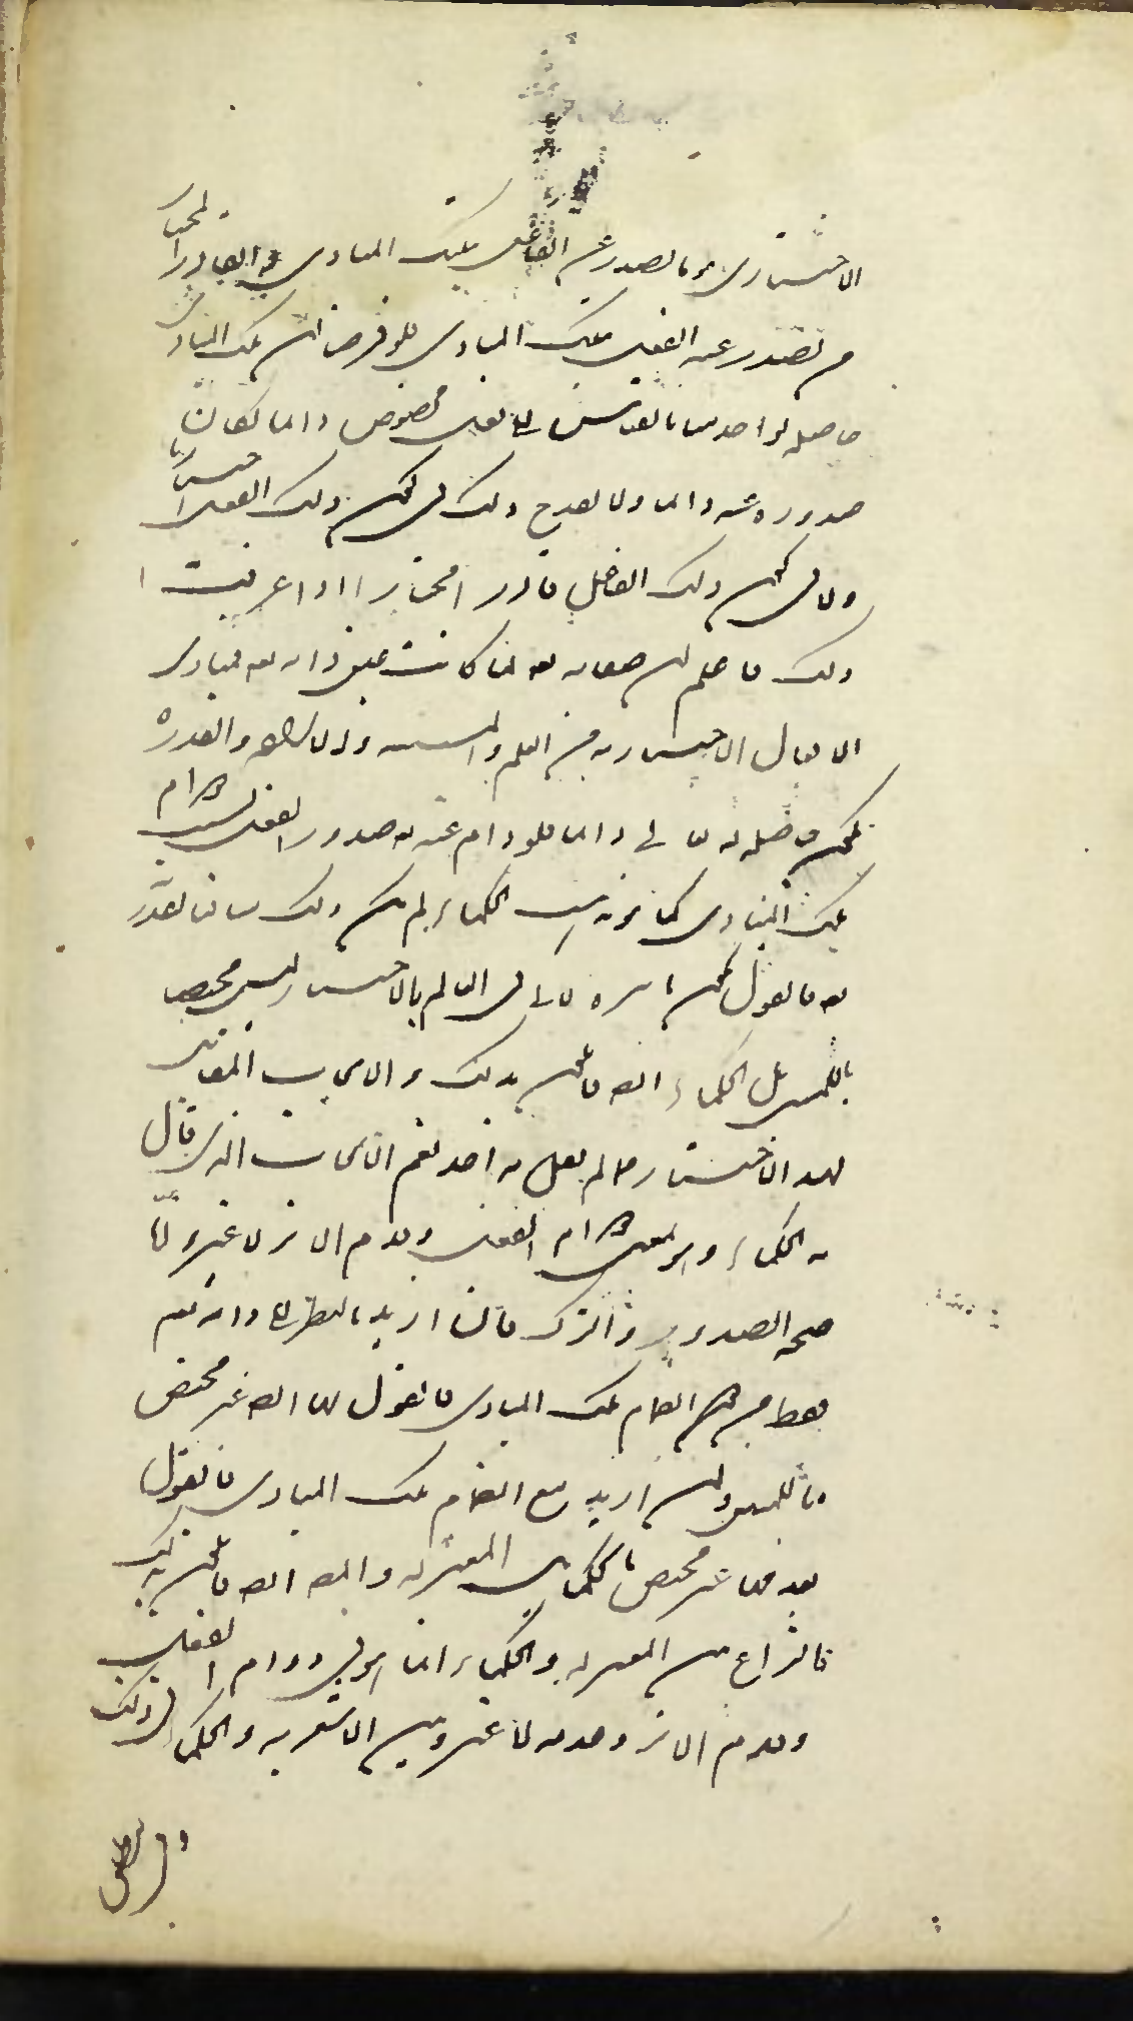 الاختيارى هو ما يصدر عن الفاعل بتلك المبادى و القادر المختار
من تصدر عنه الفعل بتلك المبادى فلو فرض ان تلك المبادى
حاصلة لواحد منا بالقياس الى فعل مخصوص دائما لكان
صدوره عنه دائما ولا يقدح ذلك فى كون ذلك الفعل اختياريا
ولا فى كون ذلك الفاعل قادرا مختارا اذا عرفت
ذلك فاعلم ان صفاته تعالى لما كانت عين ذاته تعالى فمبادى
الافعال الاختيارية من العلم والمشيية والارادة والقدرة
تكون حاصلة له تعالى دائما فلو دام عنه صدور الفعل بسبب دوام
تلك المبادى كما هو مذهب الحكماء لم يكن ذلك منافيا لقدرته
تعالى فالقول بكونه تعالى فى العالم بالاختيار ليس مختصا
بالملمين بل الحكماء ايضا قائلون بذلك والايجاب المقابل
لهذا الاختيار مما لم يقل به احد نعم الايجاب الذى قال
به الحكماء وهو بمعنى دوام الفعل وقدم الاثر لا غير واما
صحة الصدور والترك فان اريد بالنظر الى ذاته تعالى
فقط من دون انضمام تلك المبادى فالقول بها ايضا غير مختص
بالملمين وان اريد مع انضمام تلك المبادى فالقول
بعدمها غير مختص بالحكماء بل المعتزلة وايضا قائلون بذلك
فالنزاع بين المعتزلة والحكماء انما هو فى دوام الفعل
وقدم الاثر وعدمه لا غير وبين الاشعرية والحكماء فى ذلك